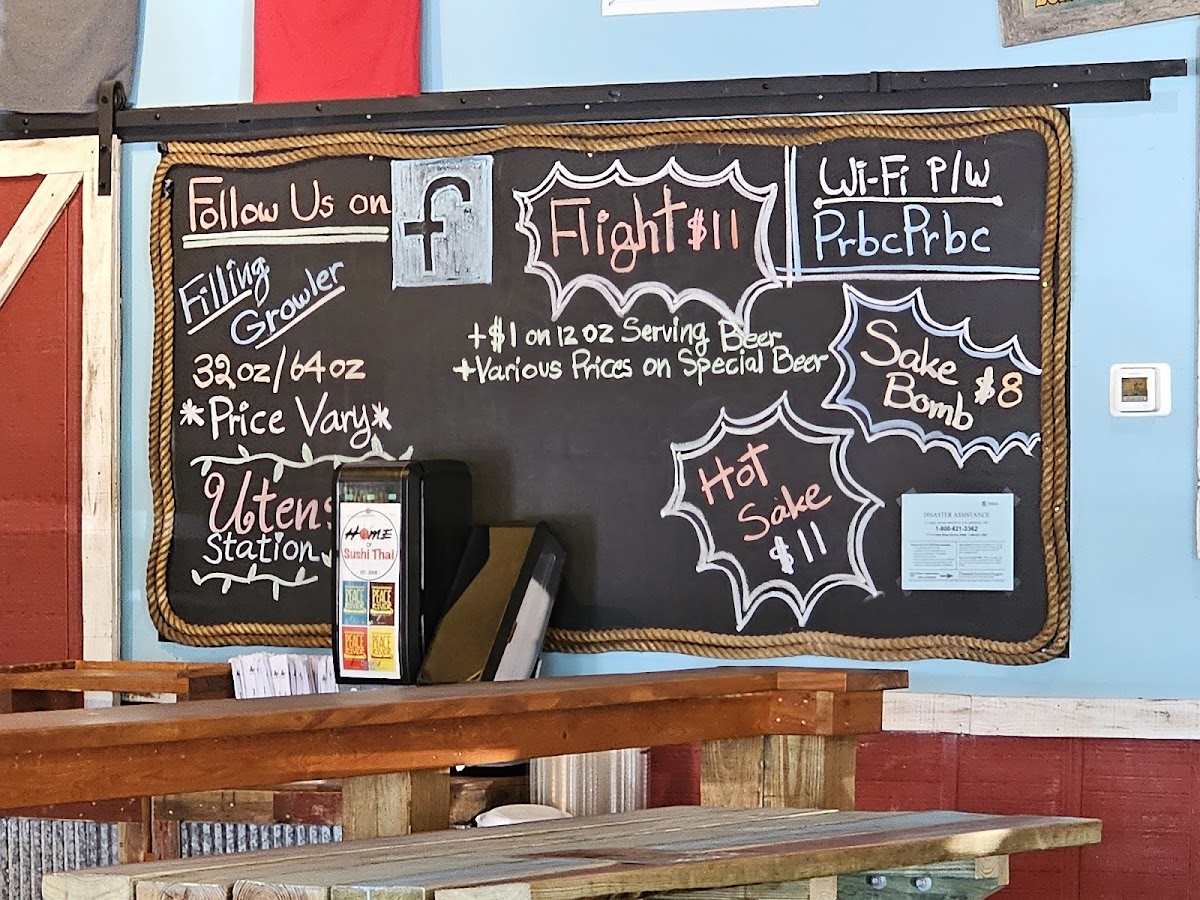 Follow Us on f
Filling
Growler
32oz/64oz
*Price Vary*
Utens
Station
Flight $11
+$1 on 12oz Serving Beer
+Various Prices on Special Beer
Wi-Fi P/W
PrbcPrbc
Sake
Bomb $8
Hot
Sake
$11
DISASTER ASSISTANCE
1-800-621-3362
HOME
OF
Sushi Thai
PEACE
RIVER
PEACE
RIVER
PEACE
RIVER
PEACE
RIVER